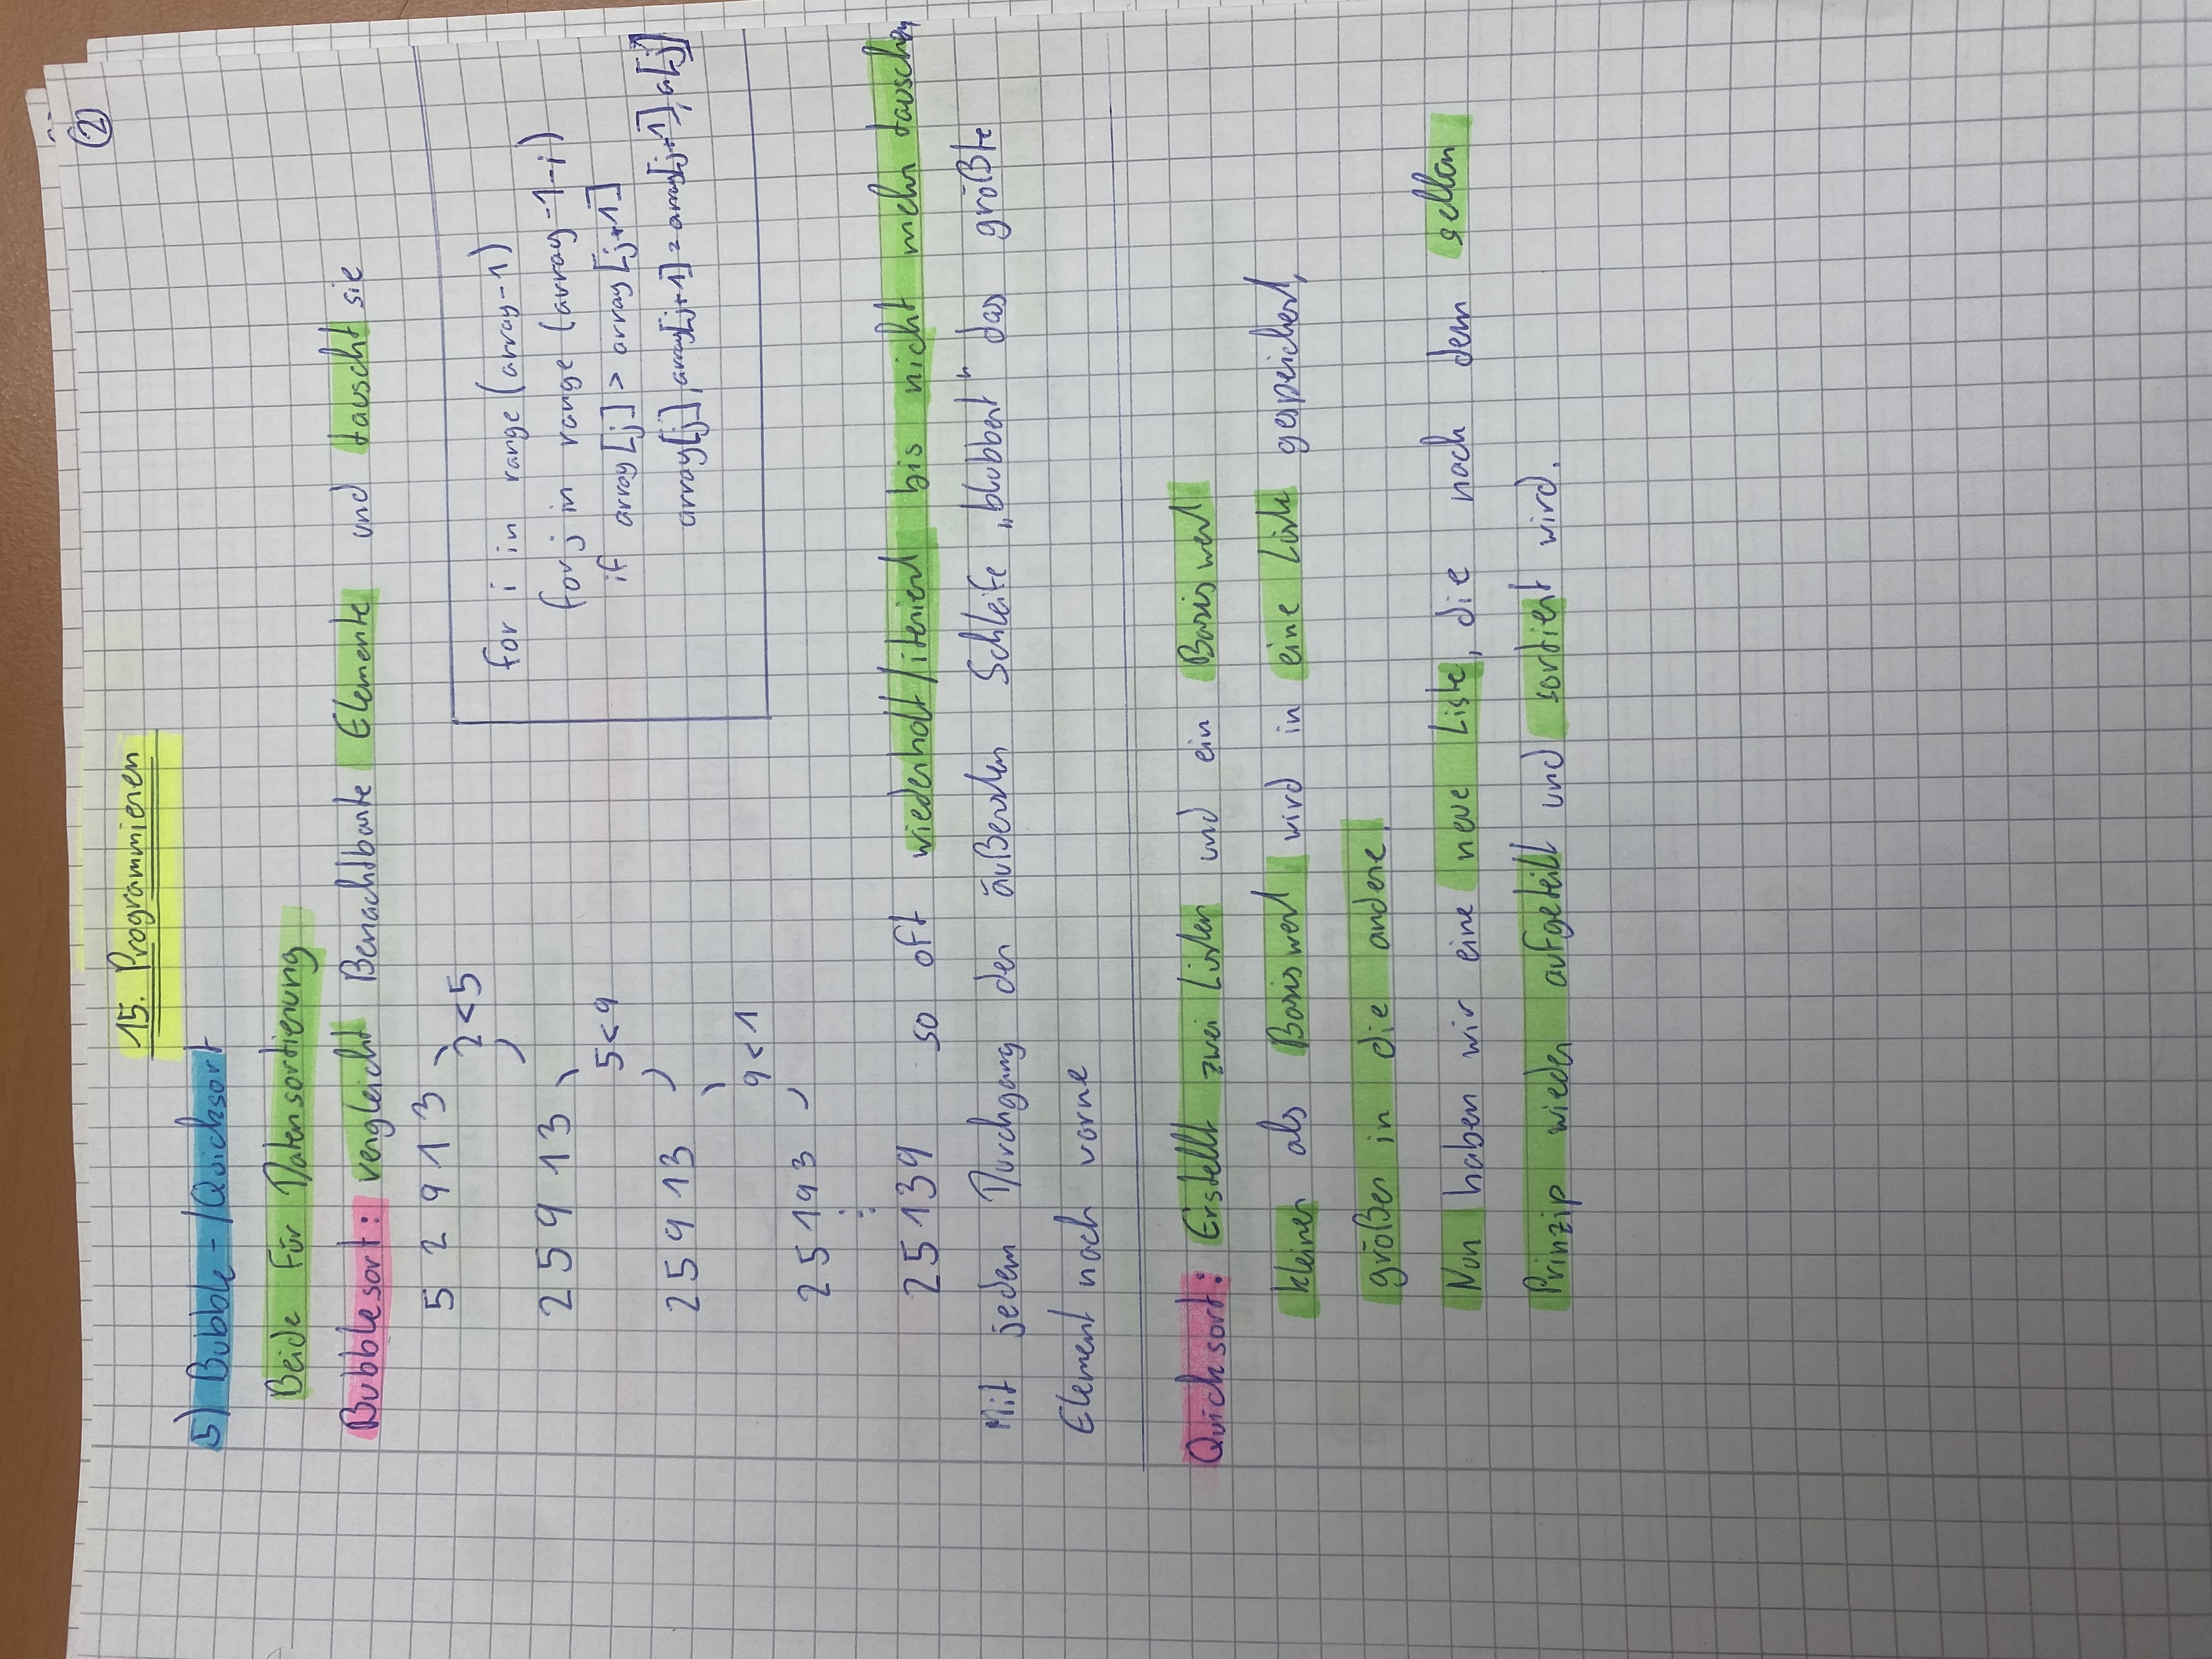 2
15. Programmieren
5) Bubble-/Quicksort
Beide für Datensortierung
Bubblesort: vergleicht Benachtbarte Elemente und tauscht sie
5 2 9 1 3
2<5
2 5 9 1 3
5<9
2 5 9 1 3
9<1
2 5 1 9 3
⋮
2 5 1 3 9 so oft wiederholt/iteriert bis nicht mehr tauschen
for i in range (array-1)
for j in range (array-1-i)
if array[j] > array[j+1]
array[j], array[j+1] = array[j+1], a[j]
Mit jedem Durchgang der äußersten Schleife „blubbert“ das größte
Element nach vorne
Quicksort: Erstellt zwei Listen und ein Basiswert
kleiner als Basiswert wird in eine Liste gespeichert,
größer in die andere.
Nun haben wir eine neue Liste, die nach dem selben
Prinzip wieder aufgeteilt und sortiert wird.